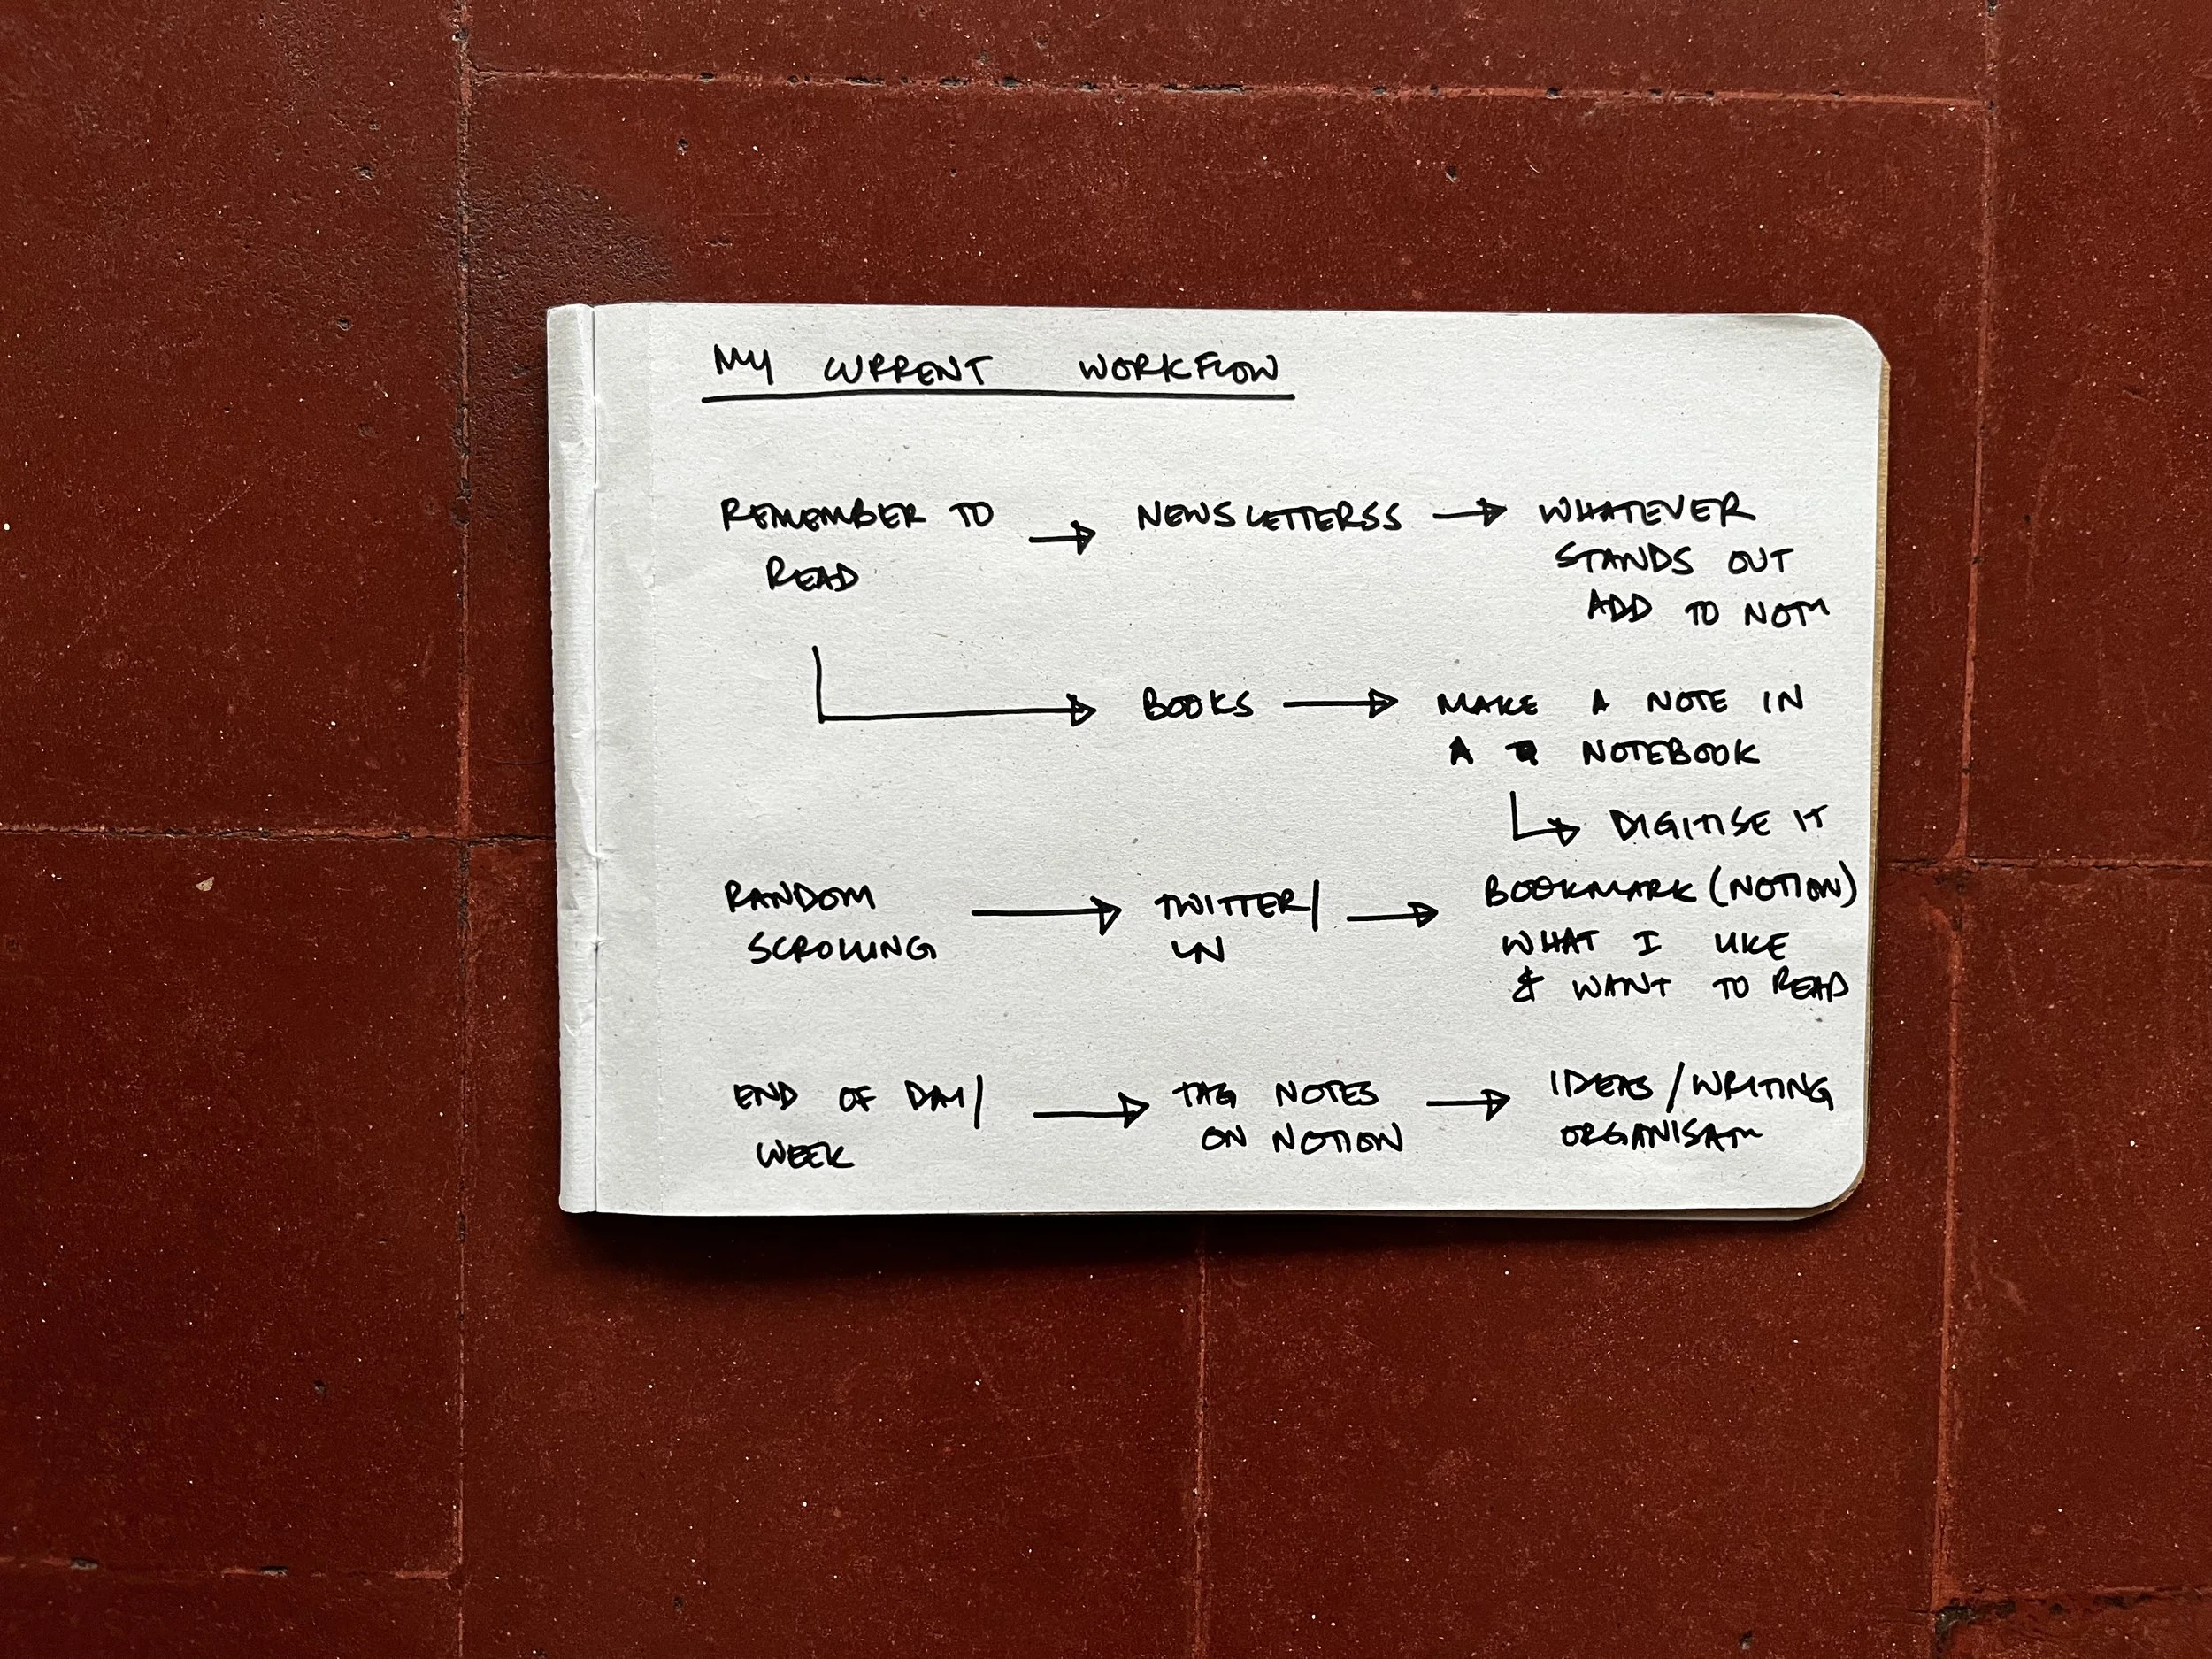 MY CURRENT WORKFLOW
REMEMBER TO
READ
NEWSLETTERSS
WHATEVER
STANDS OUT
ADD TO
BOOKS
MAKE A NOTE IN
A NOTEBOOK
DIGITISE IT
RANDOM
SCROLLING
TWITTER/
BOOKMARK (NOTION)
WHAT I LIKE
& WANT TO READ
END OF DAY/
WEEK
TAG NOTES
ON NOTION
IDEAS/WRITING